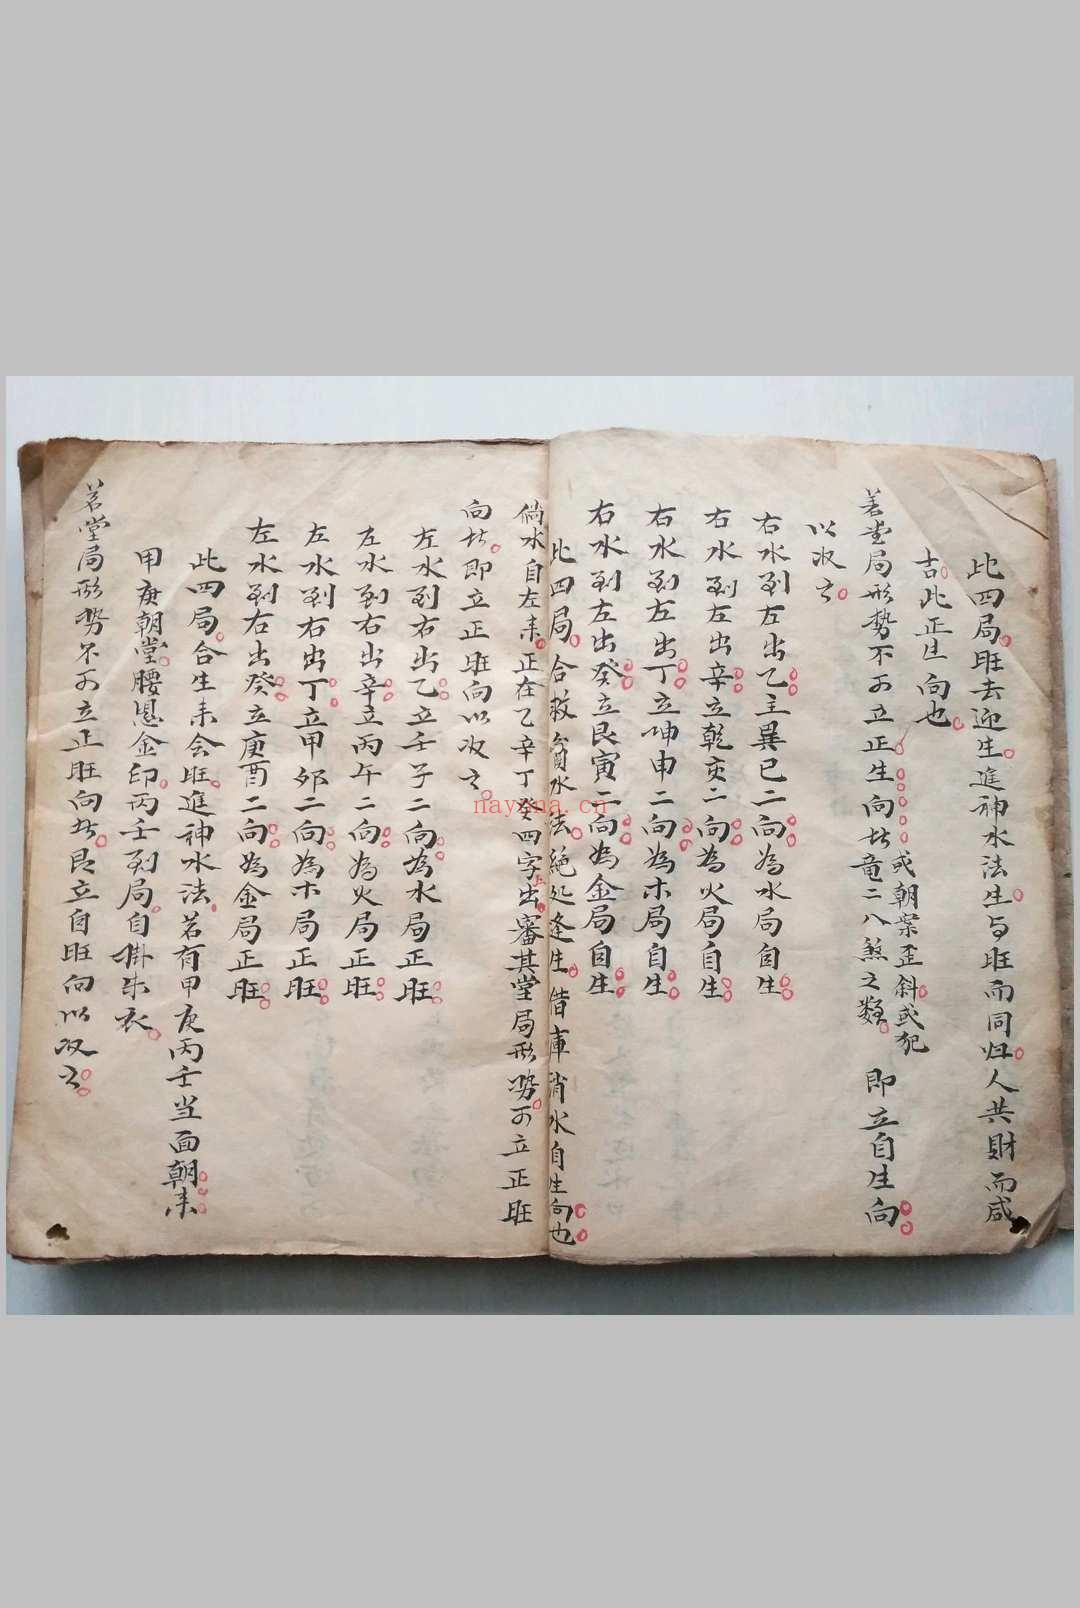 此四局旺去迎生進神水法生与旺而同归人共財而咸
吉此正生向也
若堂局形勢不可立正生向
或朝案歪斜或犯
竜二八煞之類 即立自生向
以收之
右水到左出乙立巽巳二向為水局自生
右水到左出辛立乾亥二向為火局自生
右水到左出丁立坤申二向為木局自生
右水到左出癸立艮寅二向為金局自生
此四局合救貧水法絕处逢生借庫消水自生向也
倘水自左来正在乙辛丁癸四字出審其堂局形势可立正旺
向 即立正旺向以收之
左水到右出乙立壬子二向為水局正旺
左水到右出辛立丙午二向為火局正旺
左水到右出丁立甲卯二向為木局正旺
左水到右出癸立庚酉二向為金局正旺
此四局合生来会旺進神水法若有甲庚丙壬当面朝来
甲庚朝堂腰懸金印丙壬到局自掛朱衣
若堂局形势不可立正旺向 立自旺向以收之
nayona.cn